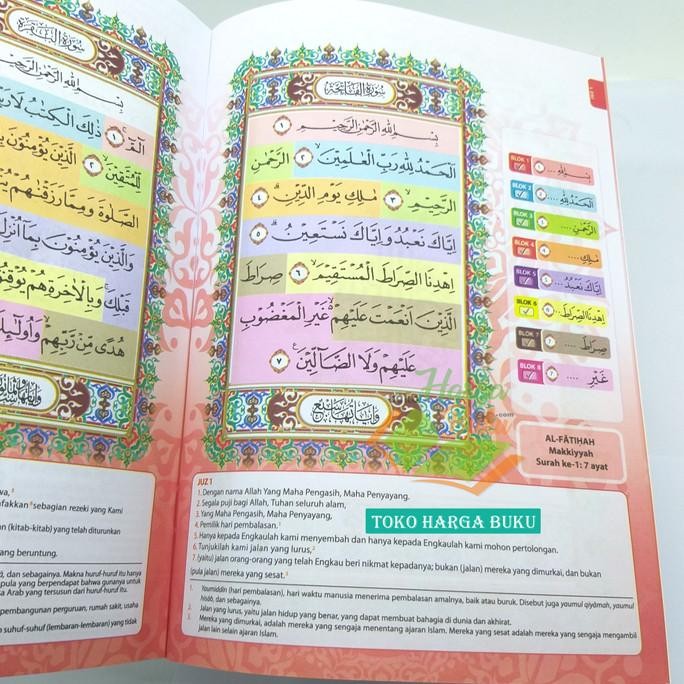 سُورَةُ الْفَاتِحَةِ
بِسْمِ اللهِ الرَّحْمٰنِ الرَّحِيْمِ ١
اَلْحَمْدُ لِلّٰهِ رَبِّ الْعٰلَمِيْنَۙ ٢ الرَّحْمٰنِ
الرَّحِيْمِۙ ٣ مٰلِكِ يَوْمِ الدِّيْنِۗ ٤
اِيَّاكَ نَعْبُدُ وَاِيَّاكَ نَسْتَعِيْنُۗ ٥
اِهْدِنَا الصِّرَاطَ الْمُسْتَقِيْمَۙ ٦ صِرَاطَ
الَّذِيْنَ اَنْعَمْتَ عَلَيْهِمْۙ غَيْرِ الْمَغْضُوْبِ
عَلَيْهِمْ وَلَا الضَّاۤلِّيْنَ ٧
وَاٰيَاتُهَا سَبْعٌ
BLOK 1 بِسْمِ اللهِ ....
BLOK 2 اَلْحَمْدُ لِلّٰهِ ....
BLOK 3 الرَّحْمٰنِ ....
BLOK 4 مٰلِكِ ....
BLOK 5 اِيَّاكَ نَعْبُدُ ....
BLOK 6 اِهْدِنَا الصِّرَاطَ ....
BLOK 7 صِرَاطَ ....
BLOK 8 غَيْرِ ....
AL-FĀTIḤAH
Makkiyyah
Surah ke-1: 7 ayat
JUZ 1
1. Dengan nama Allah Yang Maha Pengasih, Maha Penyayang.
2. Segala puji bagi Allah, Tuhan seluruh alam,
3. Yang Maha Pengasih, Maha Penyayang,
4. Pemilik hari pembalasan.1
5. Hanya kepada Engkaulah kami menyembah dan hanya kepada Engkaulah kami mohon pertolongan.
6. Tunjukilah kami jalan yang lurus,2
7. (yaitu) jalan orang-orang yang telah Engkau beri nikmat kepadanya; bukan (jalan) mereka yang dimurkai, dan bukan
(pula jalan) mereka yang sesat.3
1. Yaumiddīn (hari pembalasan), hari waktu manusia menerima pembalasan amalnya, baik atau buruk. Disebut juga yaumul qiyāmah, yaumul
hisāb, dan sebagainya.
2. Jalan yang lurus, yaitu jalan hidup yang benar, yang dapat membuat bahagia di dunia dan akhirat.
3. Mereka yang dimurkai, adalah mereka yang sengaja menentang ajaran Islam. Mereka yang sesat adalah mereka yang sengaja mengambil
jalan lain selain ajaran Islam.
TOKO HARGA BUKU
سُورَةُ الْبَقَرَةِ
بِسْمِ اللهِ الرَّحْمٰنِ الرَّ
الۤمّۤ ١ ذٰلِكَ الْكِتٰبُ لَا رَيْ
لِّلْمُتَّقِيْنَ ٢ الَّذِيْنَ يُؤْمِنُوْنَ
الصَّلٰوةَ وَمِمَّا رَزَقْنٰهُمْ
وَالَّذِيْنَ يُؤْمِنُوْنَ بِمَآ اُنْزِلَ
قَبْلِكَ وَبِالْاٰخِرَةِ هُمْ يُوْقِنُ
هُدًى مِّنْ رَّبِّهِمْ وَاُولٰۤىِٕ
fakkan sebagian rezeki yang Kami
(kitab-kitab) yang telah diturunkan
ang beruntung.
dan sebagainya. Makna huruf-huruf itu hanya
pula yang berpendapat bahwa gunanya untuk
a Arab yang tersusun dari huruf-huruf itu.
pembangunan perguruan, rumah sakit, usaha
suhuf-suhuf (lembaran-lembaran) yang tidak